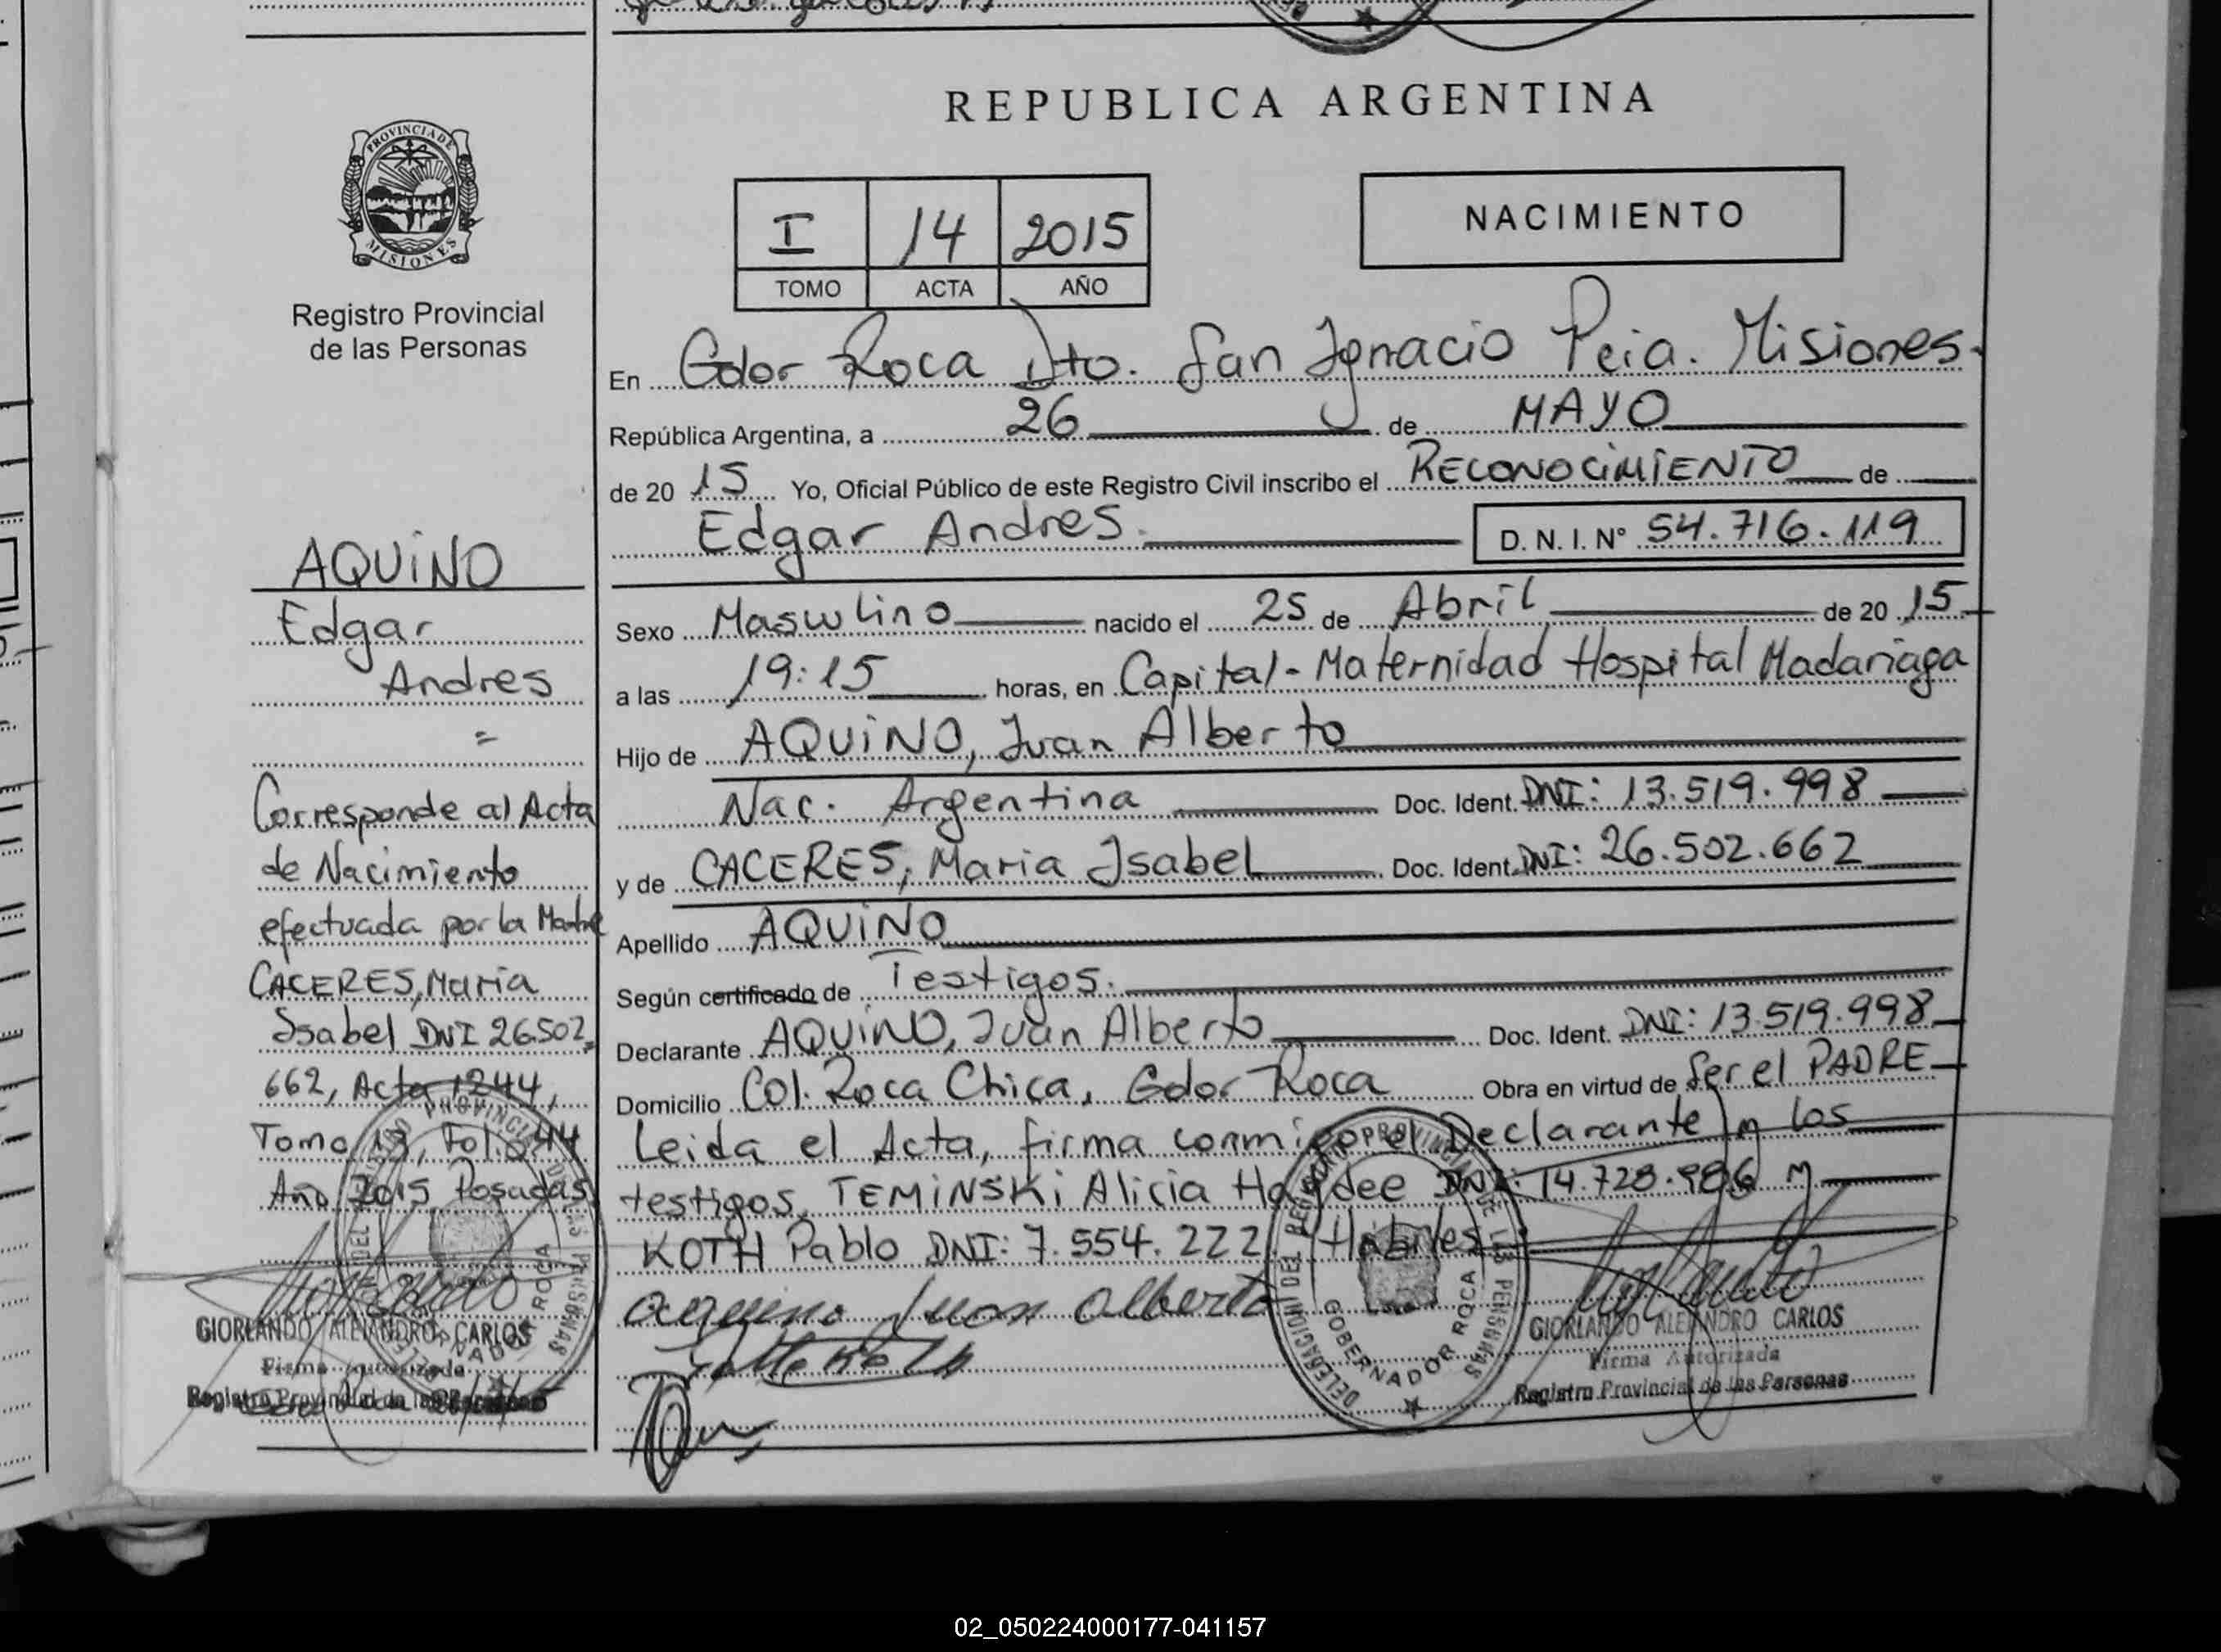 REPUBLICA ARGENTINA
PROVINCIA DE
MISIONES
Registro Provincial
de las Personas
I 14 2015
TOMO ACTA AÑO
NACIMIENTO
En Gdor Roca Dto. San Ignacio Pcia. Misiones.
República Argentina, a 26 de MAYO
de 20 15 Yo, Oficial Público de este Registro Civil inscribo el RECONOCIMIENTO de
Edgar Andres.
D. N. I. N° 54.716.119
Sexo Masculino nacido el 25 de Abril de 20 15
a las 19:15 horas, en Capital - Maternidad Hospital Madariaga
Hijo de AQUINO, Juan Alberto
Nac. Argentina Doc. Ident. DNI: 13.519.998
y de CACERES, Maria Isabel Doc. Ident. DNI: 26.502.662
Apellido AQUINO
Según certificado de Testigos.
Declarante AQUINO, Juan Alberto Doc. Ident. DNI: 13.519.998
Domicilio Col. Roca Chica, Gdor Roca Obra en virtud de Ser el PADRE
Leida el Acta, firma conmigo el Declarante y los
testigos, TEMINSKI Alicia Haydee DNI: 14.728.986 y
KOTH Pablo DNI: 7.554.222. Habiles
aquino Juan alberto
GIORLANDO ALEJANDRO CARLOS
Firma Autorizada
Registro Provincial de las Personas
DELEGACION DEL REGISTRO PROVINCIAL DE LAS PERSONAS
GOBERNADOR ROCA
AQUINO
Edgar
Andres
=
Corresponde al Acta
de Nacimiento
efectuada por la Madre
CACERES, Maria
Isabel DNI 26.502.
662, Acta 1244,
Tomo 13, Fol. 044
Año 2015 Posadas
GIORLANDO ALEJANDRO CARLOS
Firma Autorizada
Registro Provincial de las Personas
02_050224000177-041157